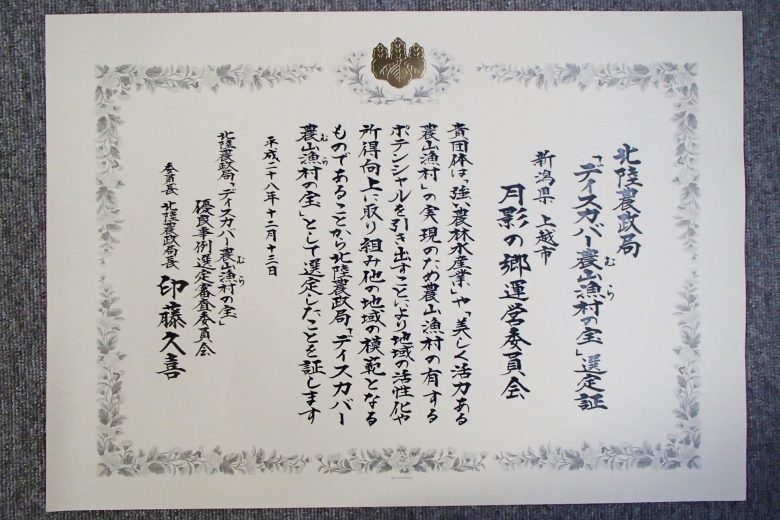 北陸農政局
「ディスカバー農山漁村の宝」選定証
むら
新潟県 上越市
月影の郷運営委員会
貴団体は、「強い農林水産業」や「美しく活力ある
農山漁村」の実現のため農山漁村の有する
ポテンシャルを引き出すことにより地域の活性化や
所得向上に取り組み他の地域の模範となる
ものであることから北陸農政局「ディスカバー
農山漁村の宝」として選定したことを証します
むら
平成二十八年十二月十三日
北陸農政局「ディスカバー農山漁村の宝」
むら
優良事例選定審査委員会
委員長 北陸農政局長 印藤久喜